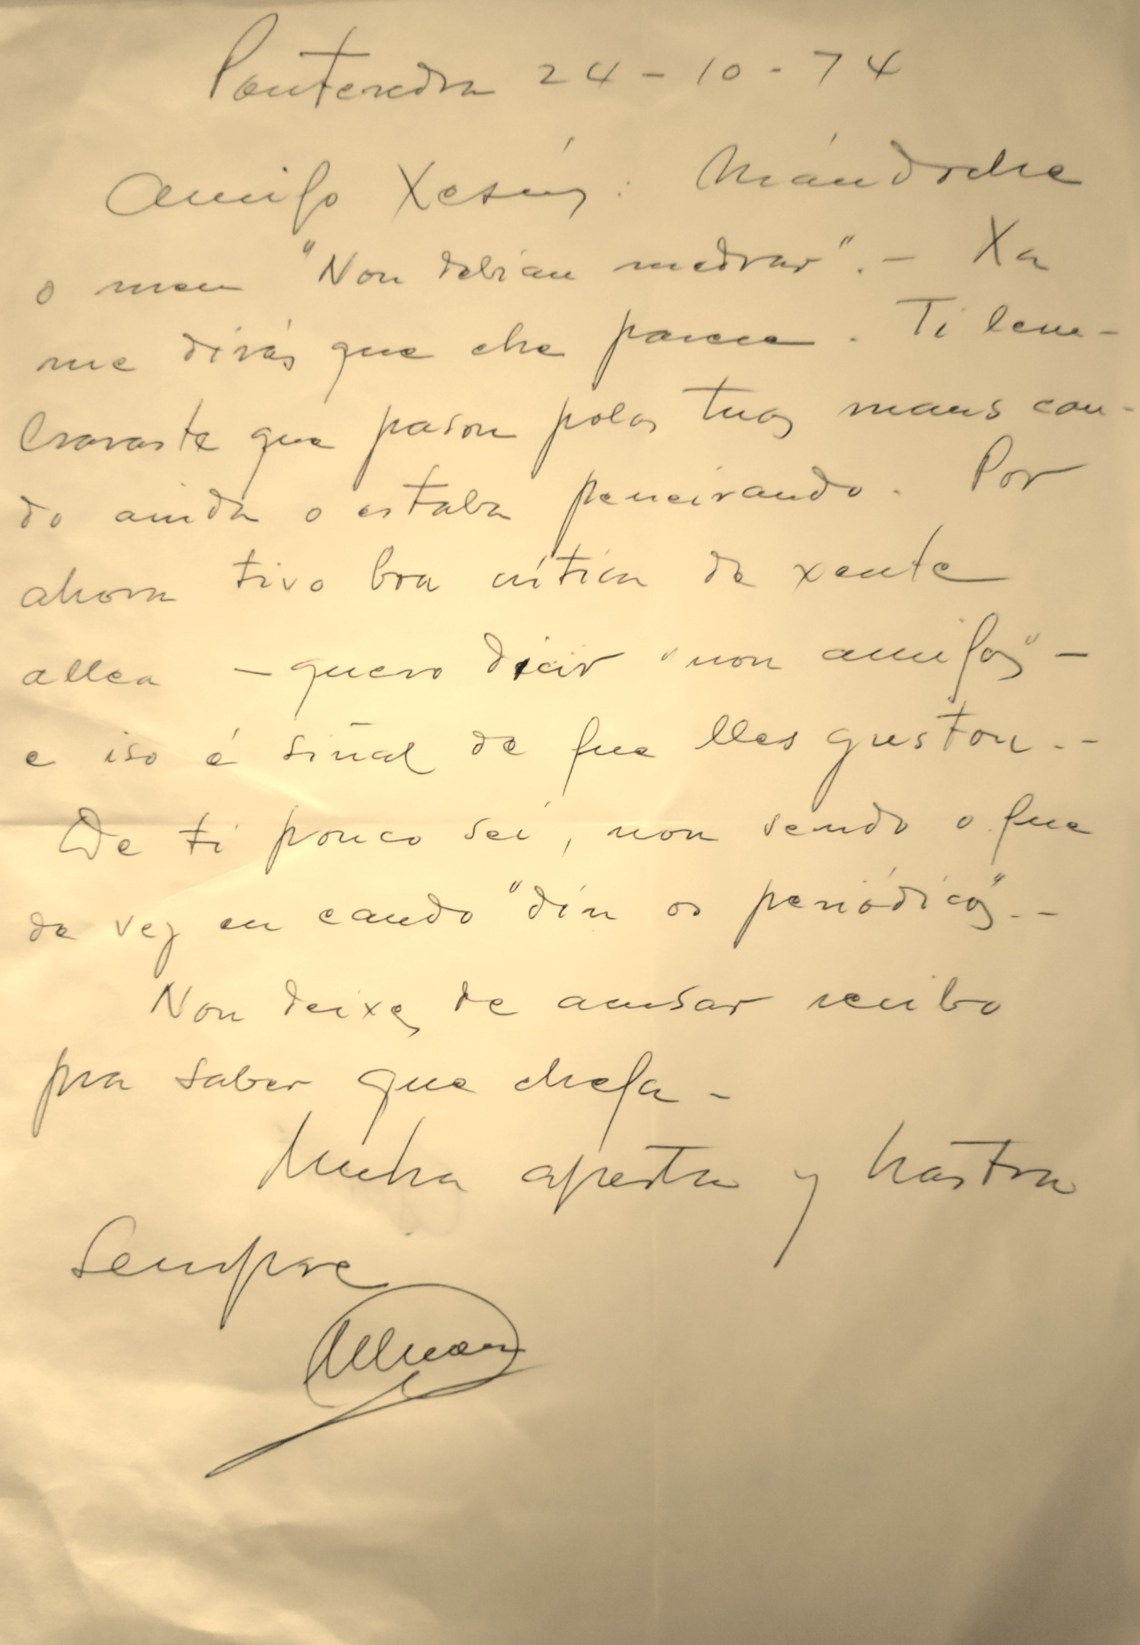 Pontevedra 24-10-74
Amigo Xesús: Mándoche
o meu "Non debían medrar".- Xa
me dirás que che parece. Ti lem-
braraste que pasou polas tuas maus can-
do ainda o estaba peneirando. Por
ahora tivo boa crítica da xente
allea - quero dicir "non amigos" -
e iso é siñal de que lles gustou.-
De ti pouco sei, non sendo o que
de vez en cando "din os periódicos".-
Non deixes de acusar recibo
pra saber que chega-
Unha aperta y hastra
sempre